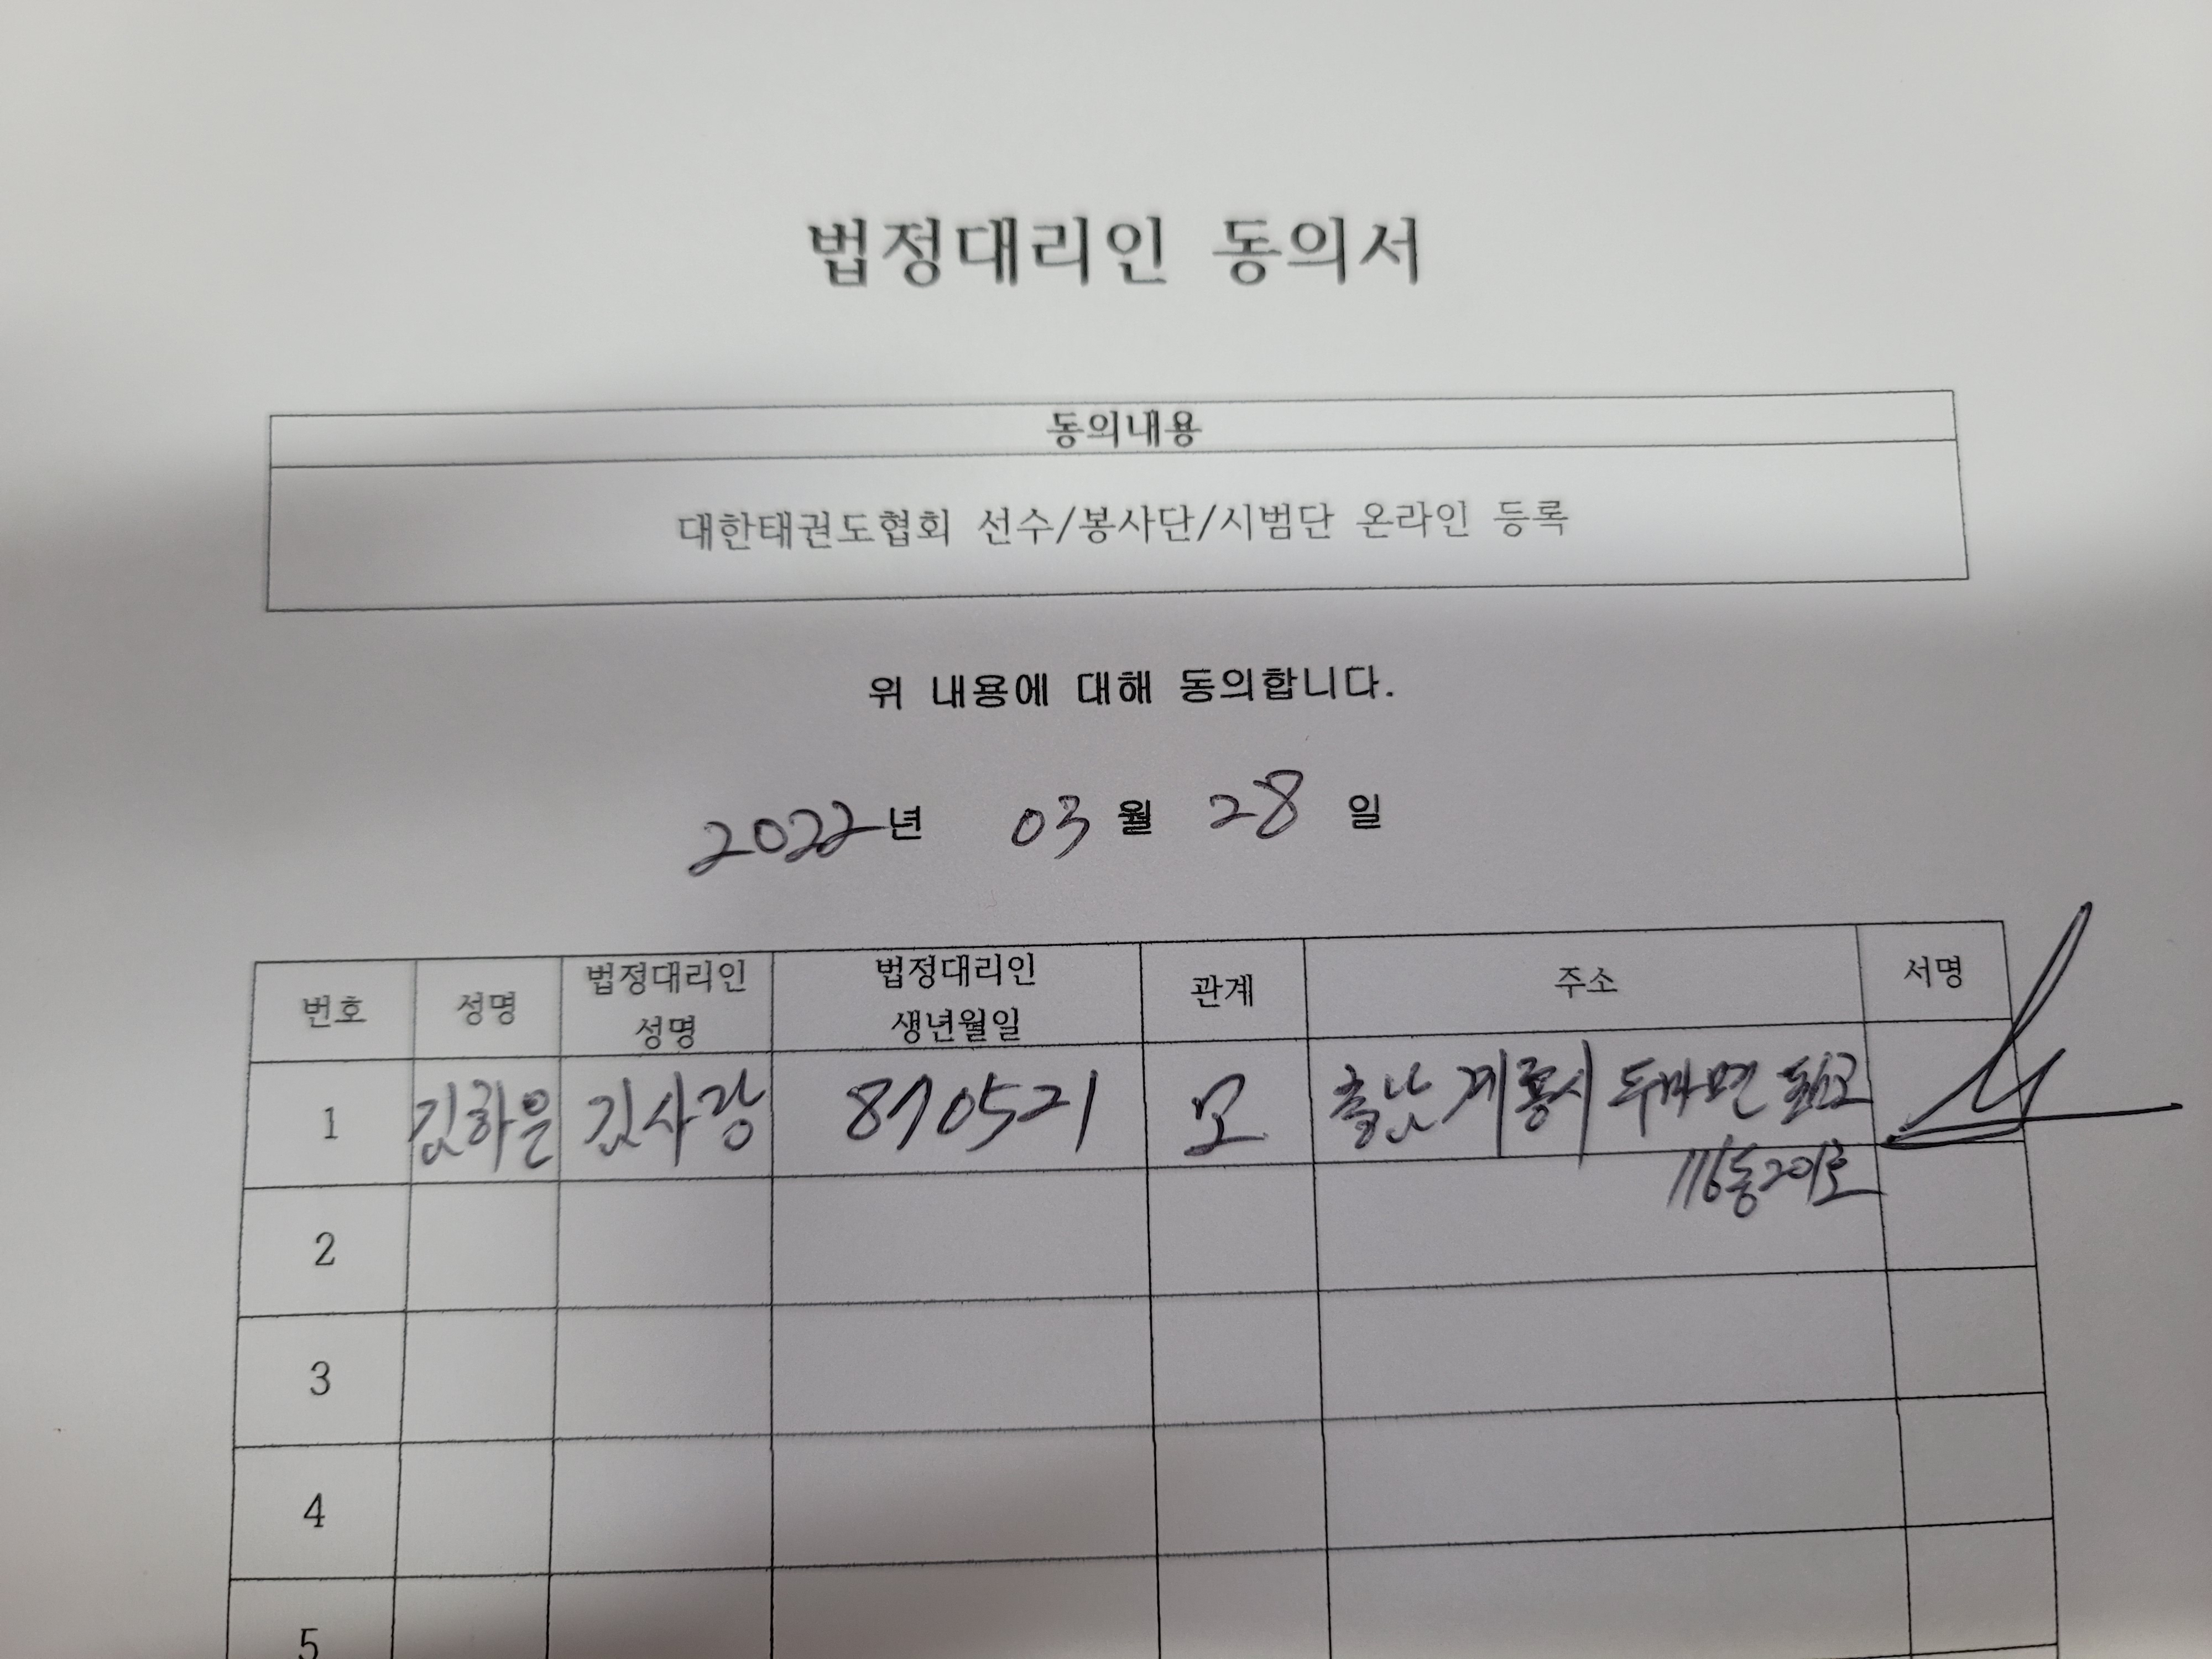 법정대리인 동의서
동의내용
대한태권도협회 선수/봉사단/시범단 온라인 등록
위 내용에 대해 동의합니다.
2022년 03월 28일
번호 성명 법정대리인 성명 법정대리인 생년월일 관계 주소 서명
1 김하은 김사랑 870521 모 충남 계룡시 두마면
116동 201호
2
3
4
5